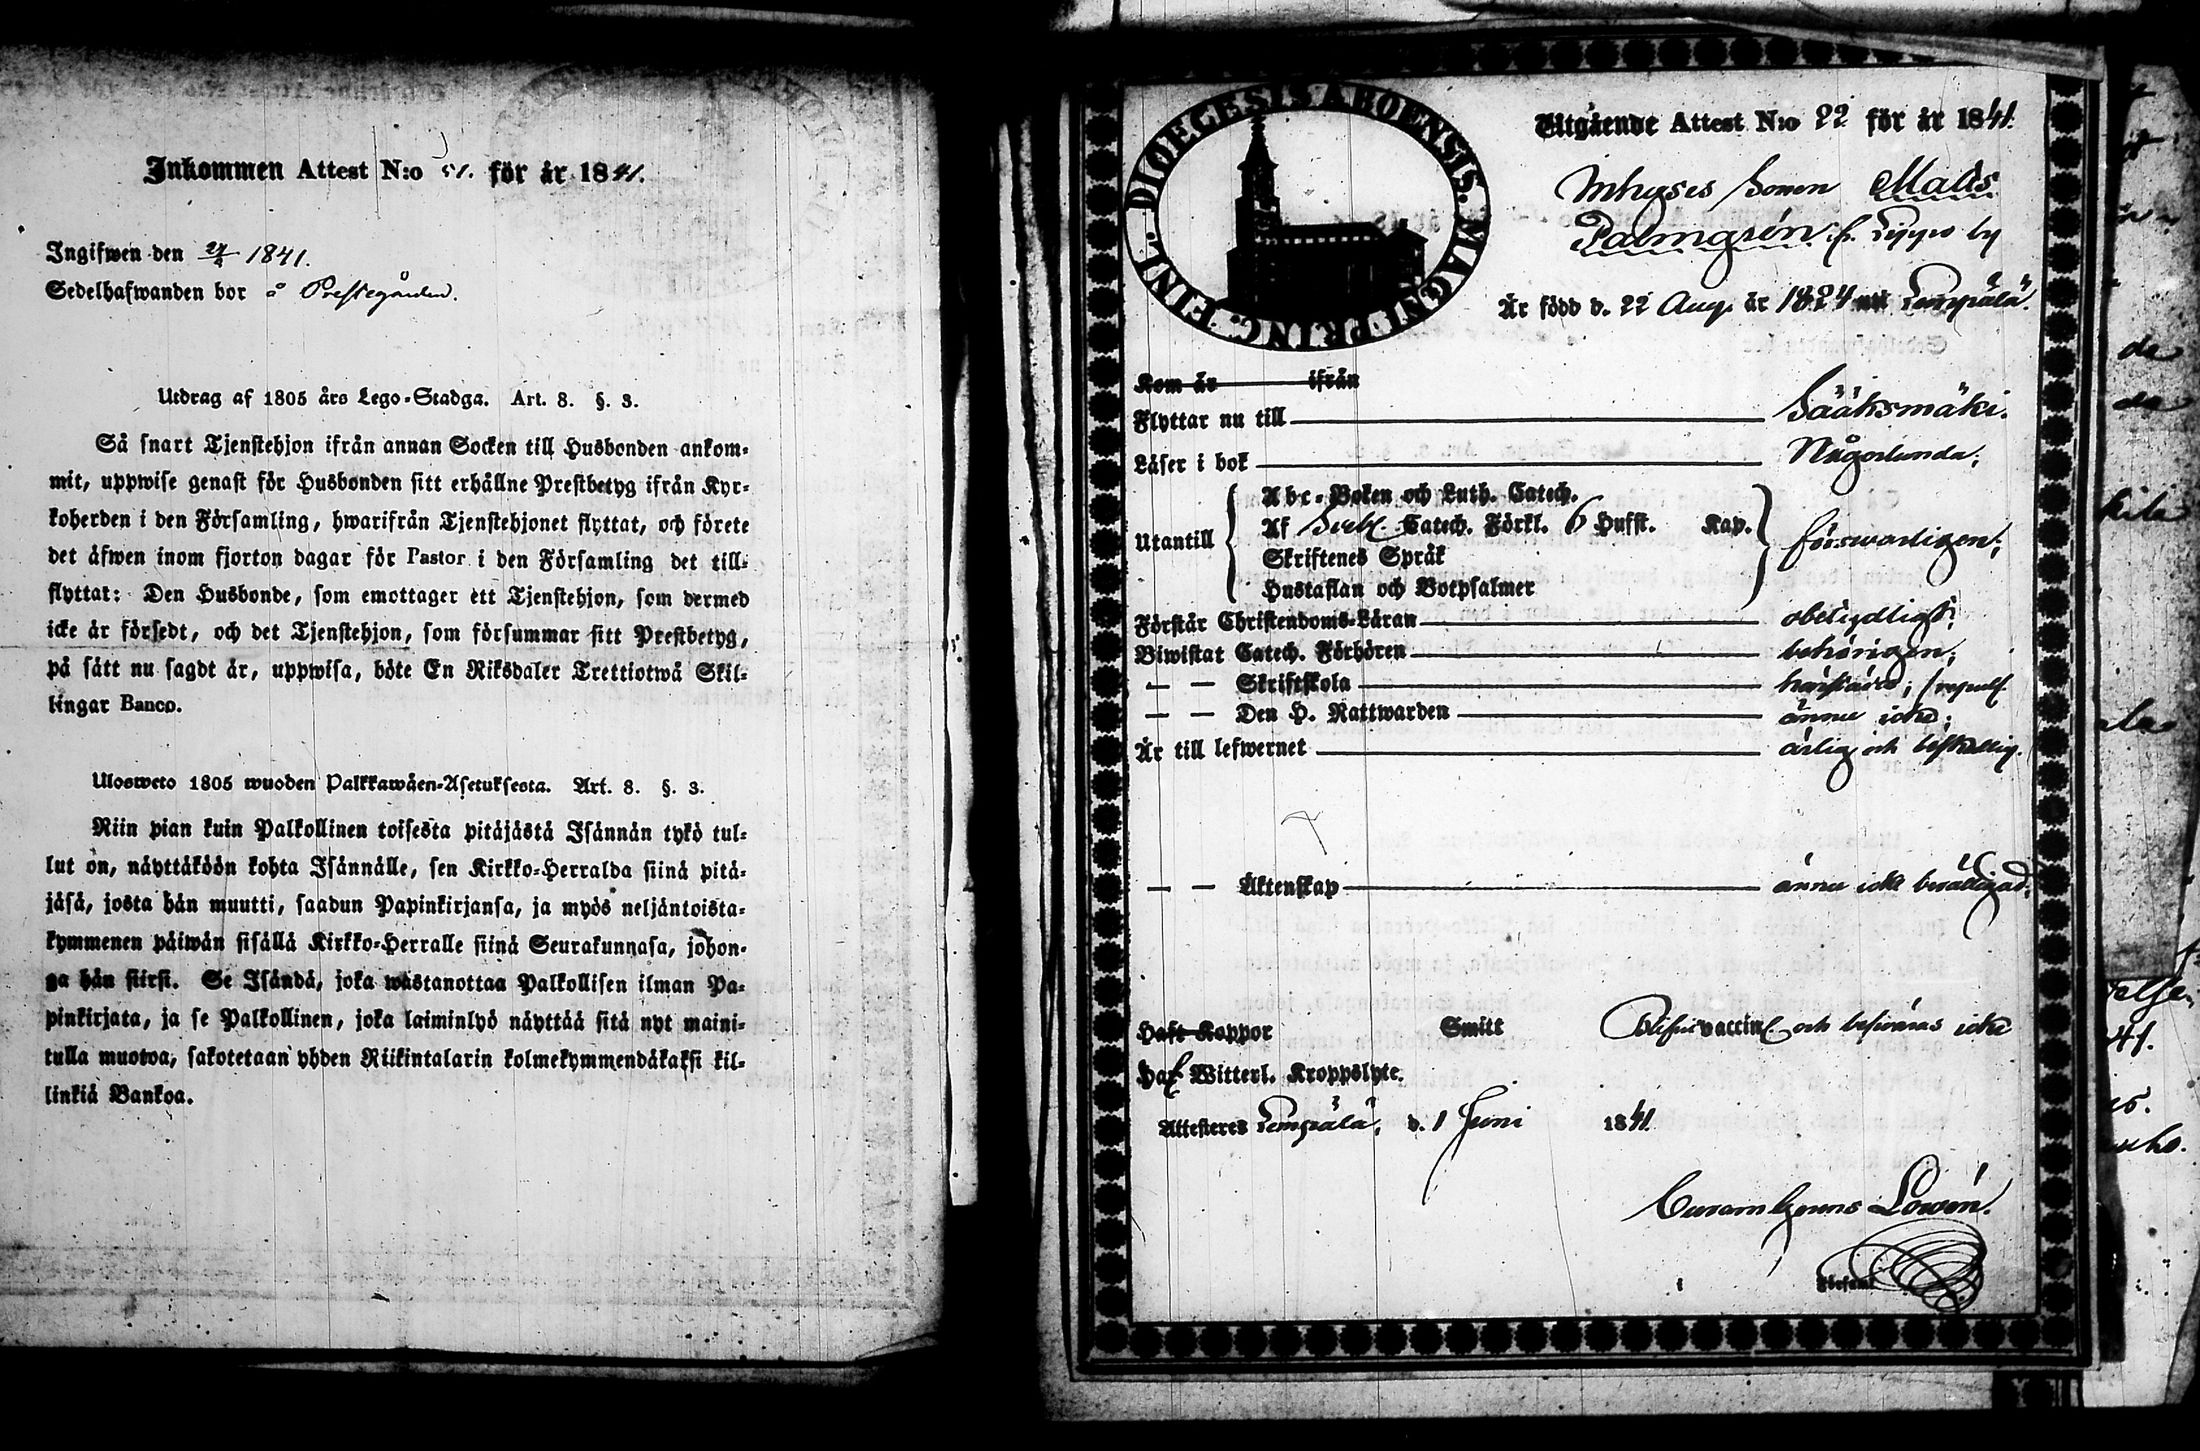 Inkommen Attest N:o 51. för år 1841.
Ingifwen den 1841.
Sedelhafwanden bor å Prestegården.
Utdrag af 1805 års Lego-Stadga. Art. 8. §. 3.
Så snart Tjenstehjon ifrån annan Socken till Husbonden ankom-
mit, uppwise genast för Husbonden sitt erhållne Prestbetyg ifrån Kyr-
koherden i den Församling, hwarifrån Tjenstehjonet flyttat, och förete
det åfwen inom fjorton dagar för Pastor i den Församling det till-
flyttat: Den Husbonde, som emottager ett Tjenstehjon, som dermed
icke är försedt, och det Tjenstehjon, som försummar sitt Prestbetyg,
på sått nu sagdt är, uppwisa, böte En Riksdaler Trettiotwå Skil-
lingar Banco.
Ulosweto 1805 wuoden Palkkawåen-Asetuksesta. Art. 8. §. 3.
Niin pian kuin Palkollinen toisesta pitäjästä Isännän tykö tul-
lut on, näyttäköön kohta Isännälle, sen Kirkko-Herralda siinä pitä-
jäsä, josta hän muutti, saadun Papinkirjansa, ja myös neljäntoista-
kymmenen päiwän sisällä Kirkko-Herralle siinä Seurakunnasa, johon-
ga hän siirsi. Se Isändä, joka wastanottaa Palkollisen ilman Pa-
pinkirjata, ja se Palkollinen, joka laiminlyö näyttää sitä nyt maini-
tulla muotoa, sakotetaan yhden Riikintalarin kolmekymmendäkaksi kil-
linkiä Bankoa.
DIOECESIS ABOENSIS. MAGNI PRINC. FINL.
Utgående Attest N:o 22 för år 1841.
Inhyses Sonen Matts
Palmgrén fr. by
Är född d. 22 Aug. år 1824 uti Lempälä.
Kom år ifrån
Flyttar nu till Sääksmäki.
Läser i bok Någorlunda;
Utantill
Abc-Boken och Luth. Catech.
Af Catech. Förkl. 6 Hufst. Kap.
Skriftenes Språk
Hustaflan och Botpsalmer
försvarligen;
Förstår Christendoms-Läran obetydligt;
Biwistat Catech. Förhören behörigen;
— — Skriftskola
— — Den H. Nattwarden ännu icke;
Är till lefwernet ärlig och beskedlig.
— — Äktenskap ännu icke berättigad.
Haft Koppor Smitt vaccin och besväras icke
Haf Witterl. Kroppslyte.
Attesteres Lempälä, d. 1 Juni 1841.
Curam Gerens Lowén.
i Församl.